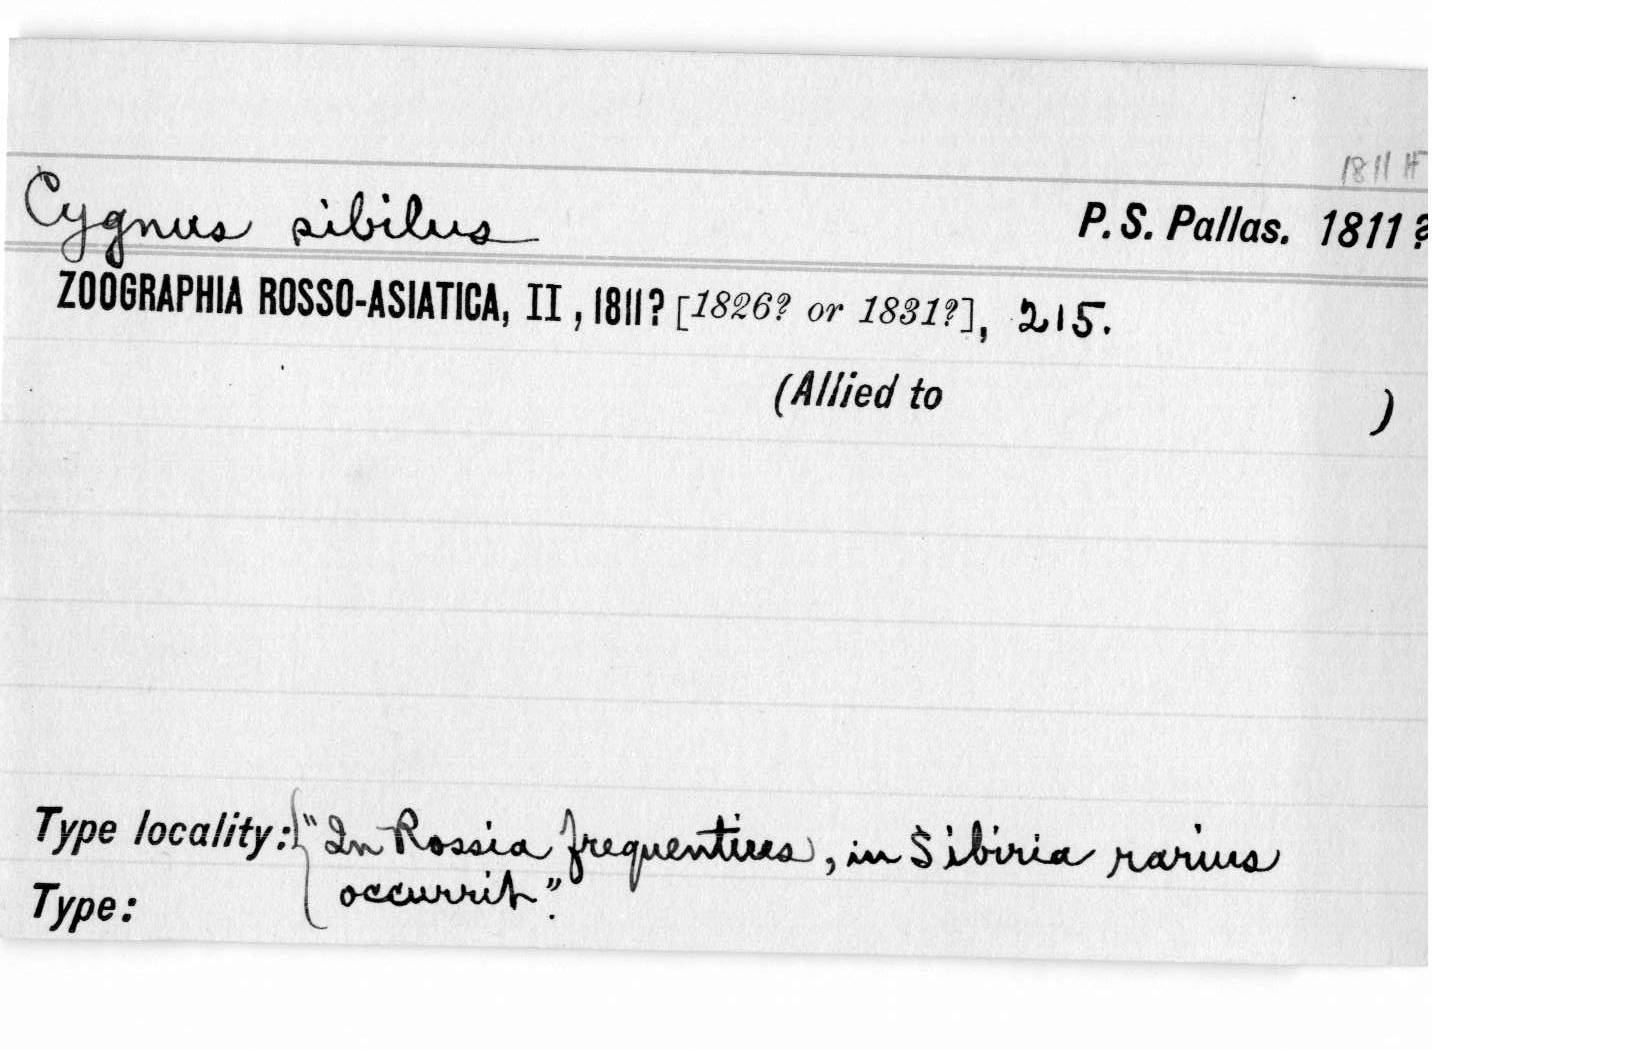 1811 H
Cygnus sibilus P. S. Pallas. 1811?
ZOOGRAPHIA ROSSO-ASIATICA, II, 1811? [1826? or 1831?], 215.
(Allied to )
Type locality: "In Rossia frequentius, in Sibiria rarius
Type: occurrit".